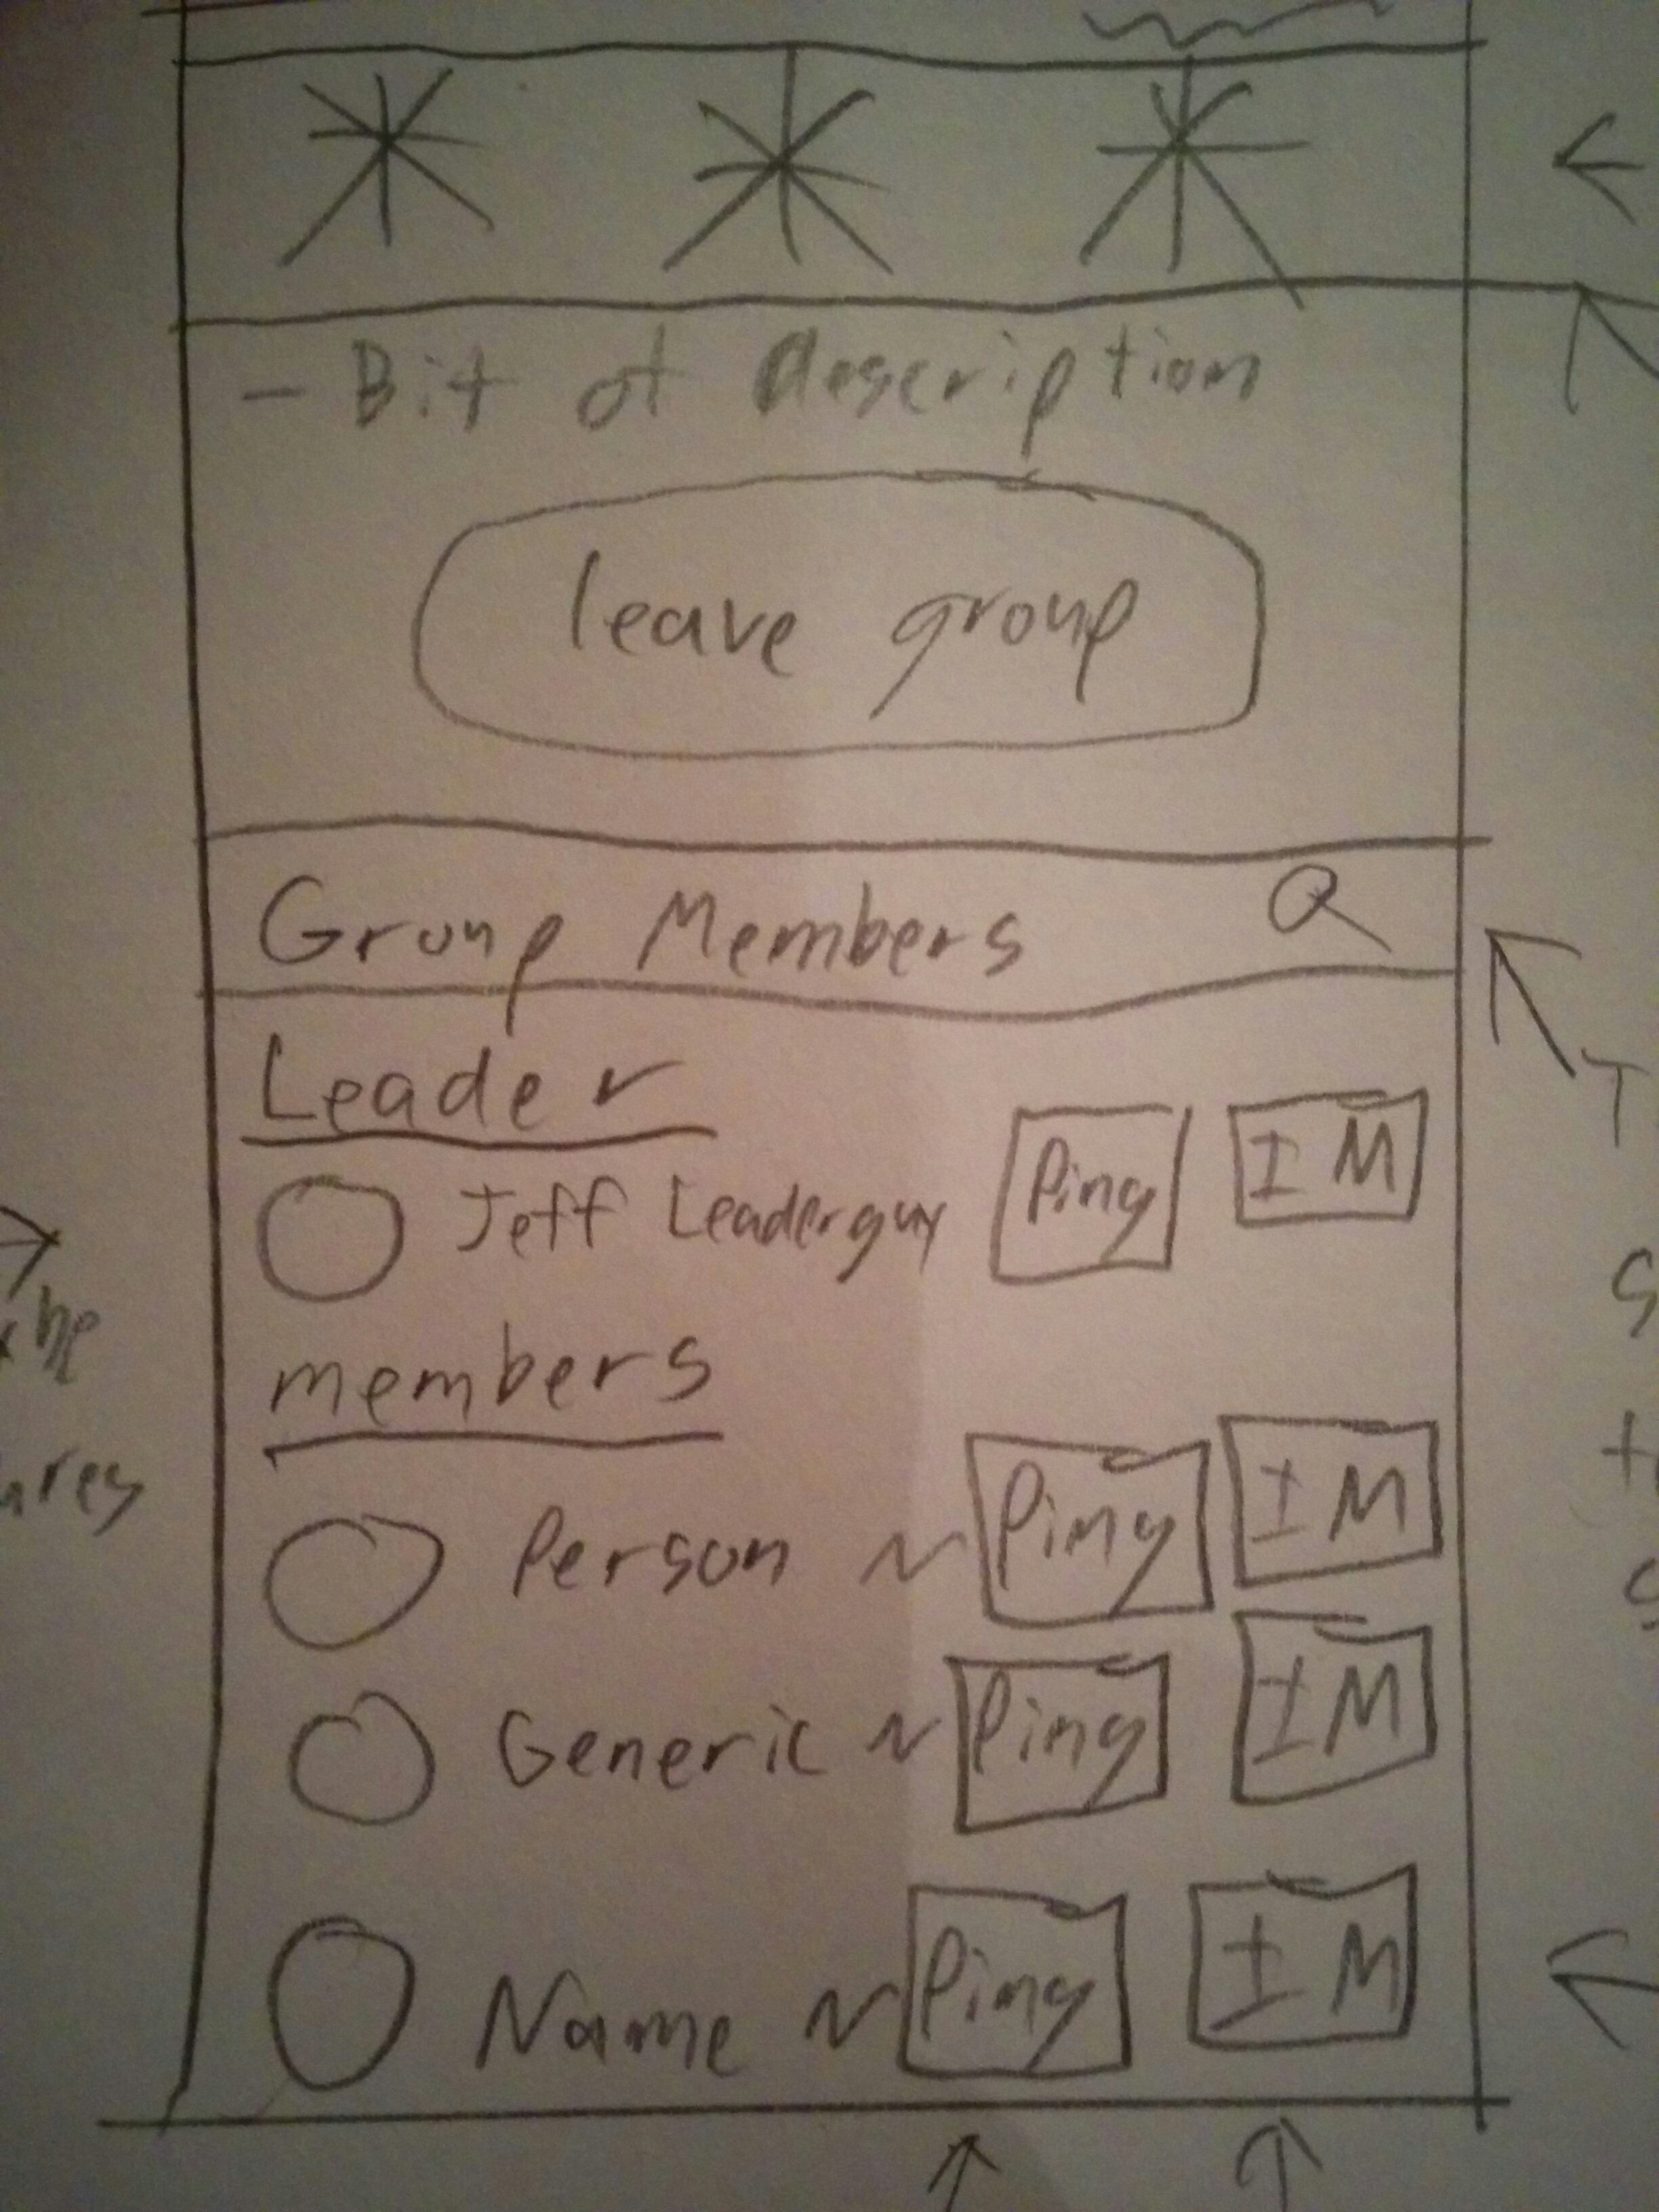 - Bit of description
leave group
Group Members
Leader
Jeff Leaderguy Ping IM
members
Person ~ Ping IM
Generic ~ Ping IM
Name ~ Ping IM
T